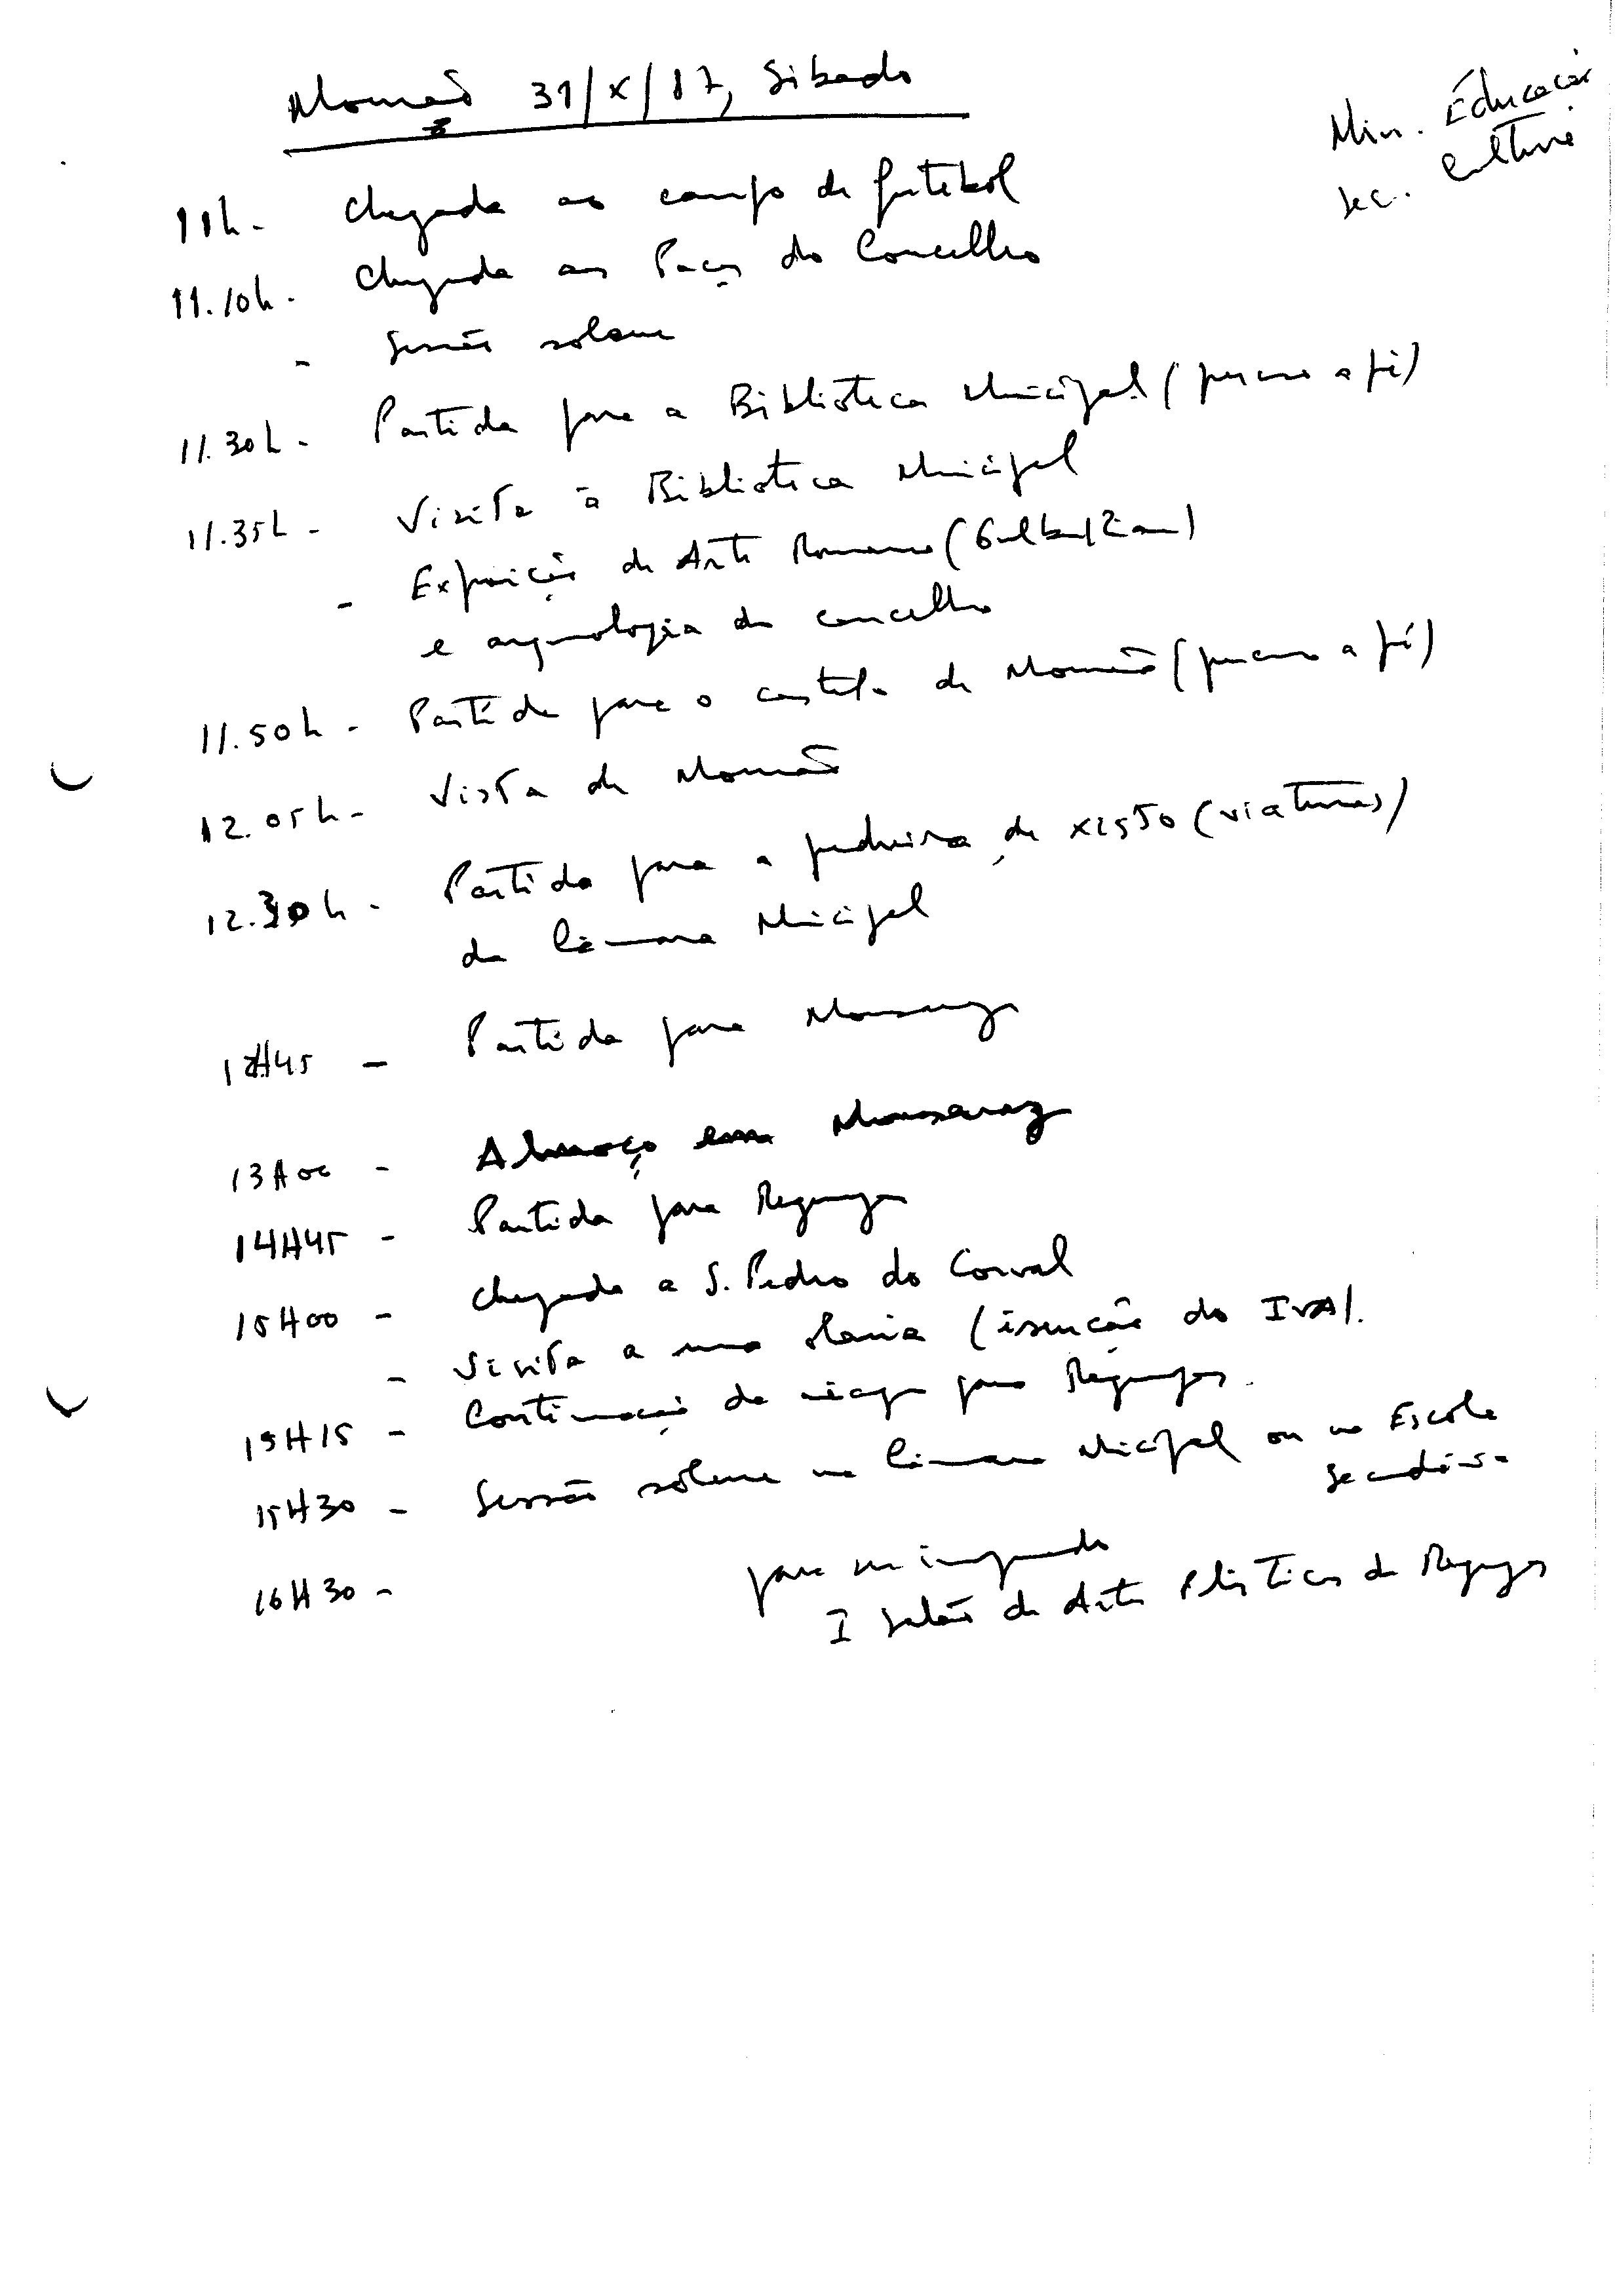 Mourão 31/X/87, Sábado
Min. Educação
Sec. Cultura
11h - Chegada ao campo de futebol
11.10h - Chegada aos Paços do Concelho
- Sessão solene
11.30h - Partida para a Biblioteca Municipal (percurso a pé)
11.35h - Visita à Biblioteca Municipal
- Exposição de Arte Romana (Gulbenkian)
e arqueologia do concelho
11.50h - Partida para o castelo de Mourão (percurso a pé)
12.05h - Vista de Mourão
12.30h - Partida para a pedreira de xisto (viaturas)
da Câmara Municipal
12H45 - Partida para Monsaraz
13H00 - Almoço em Monsaraz
14H45 - Partida para Reguengos
15H00 - Chegada a S. Pedro do Corval
- Visita a uma olaria (isenção do IVA).
15H15 - Continuação da viagem para Reguengos.
15H30 - Sessão solene na Câmara Municipal ou na Escola
Secundária
16H30 - para
I Salão de Artes Plásticas de Reguengos